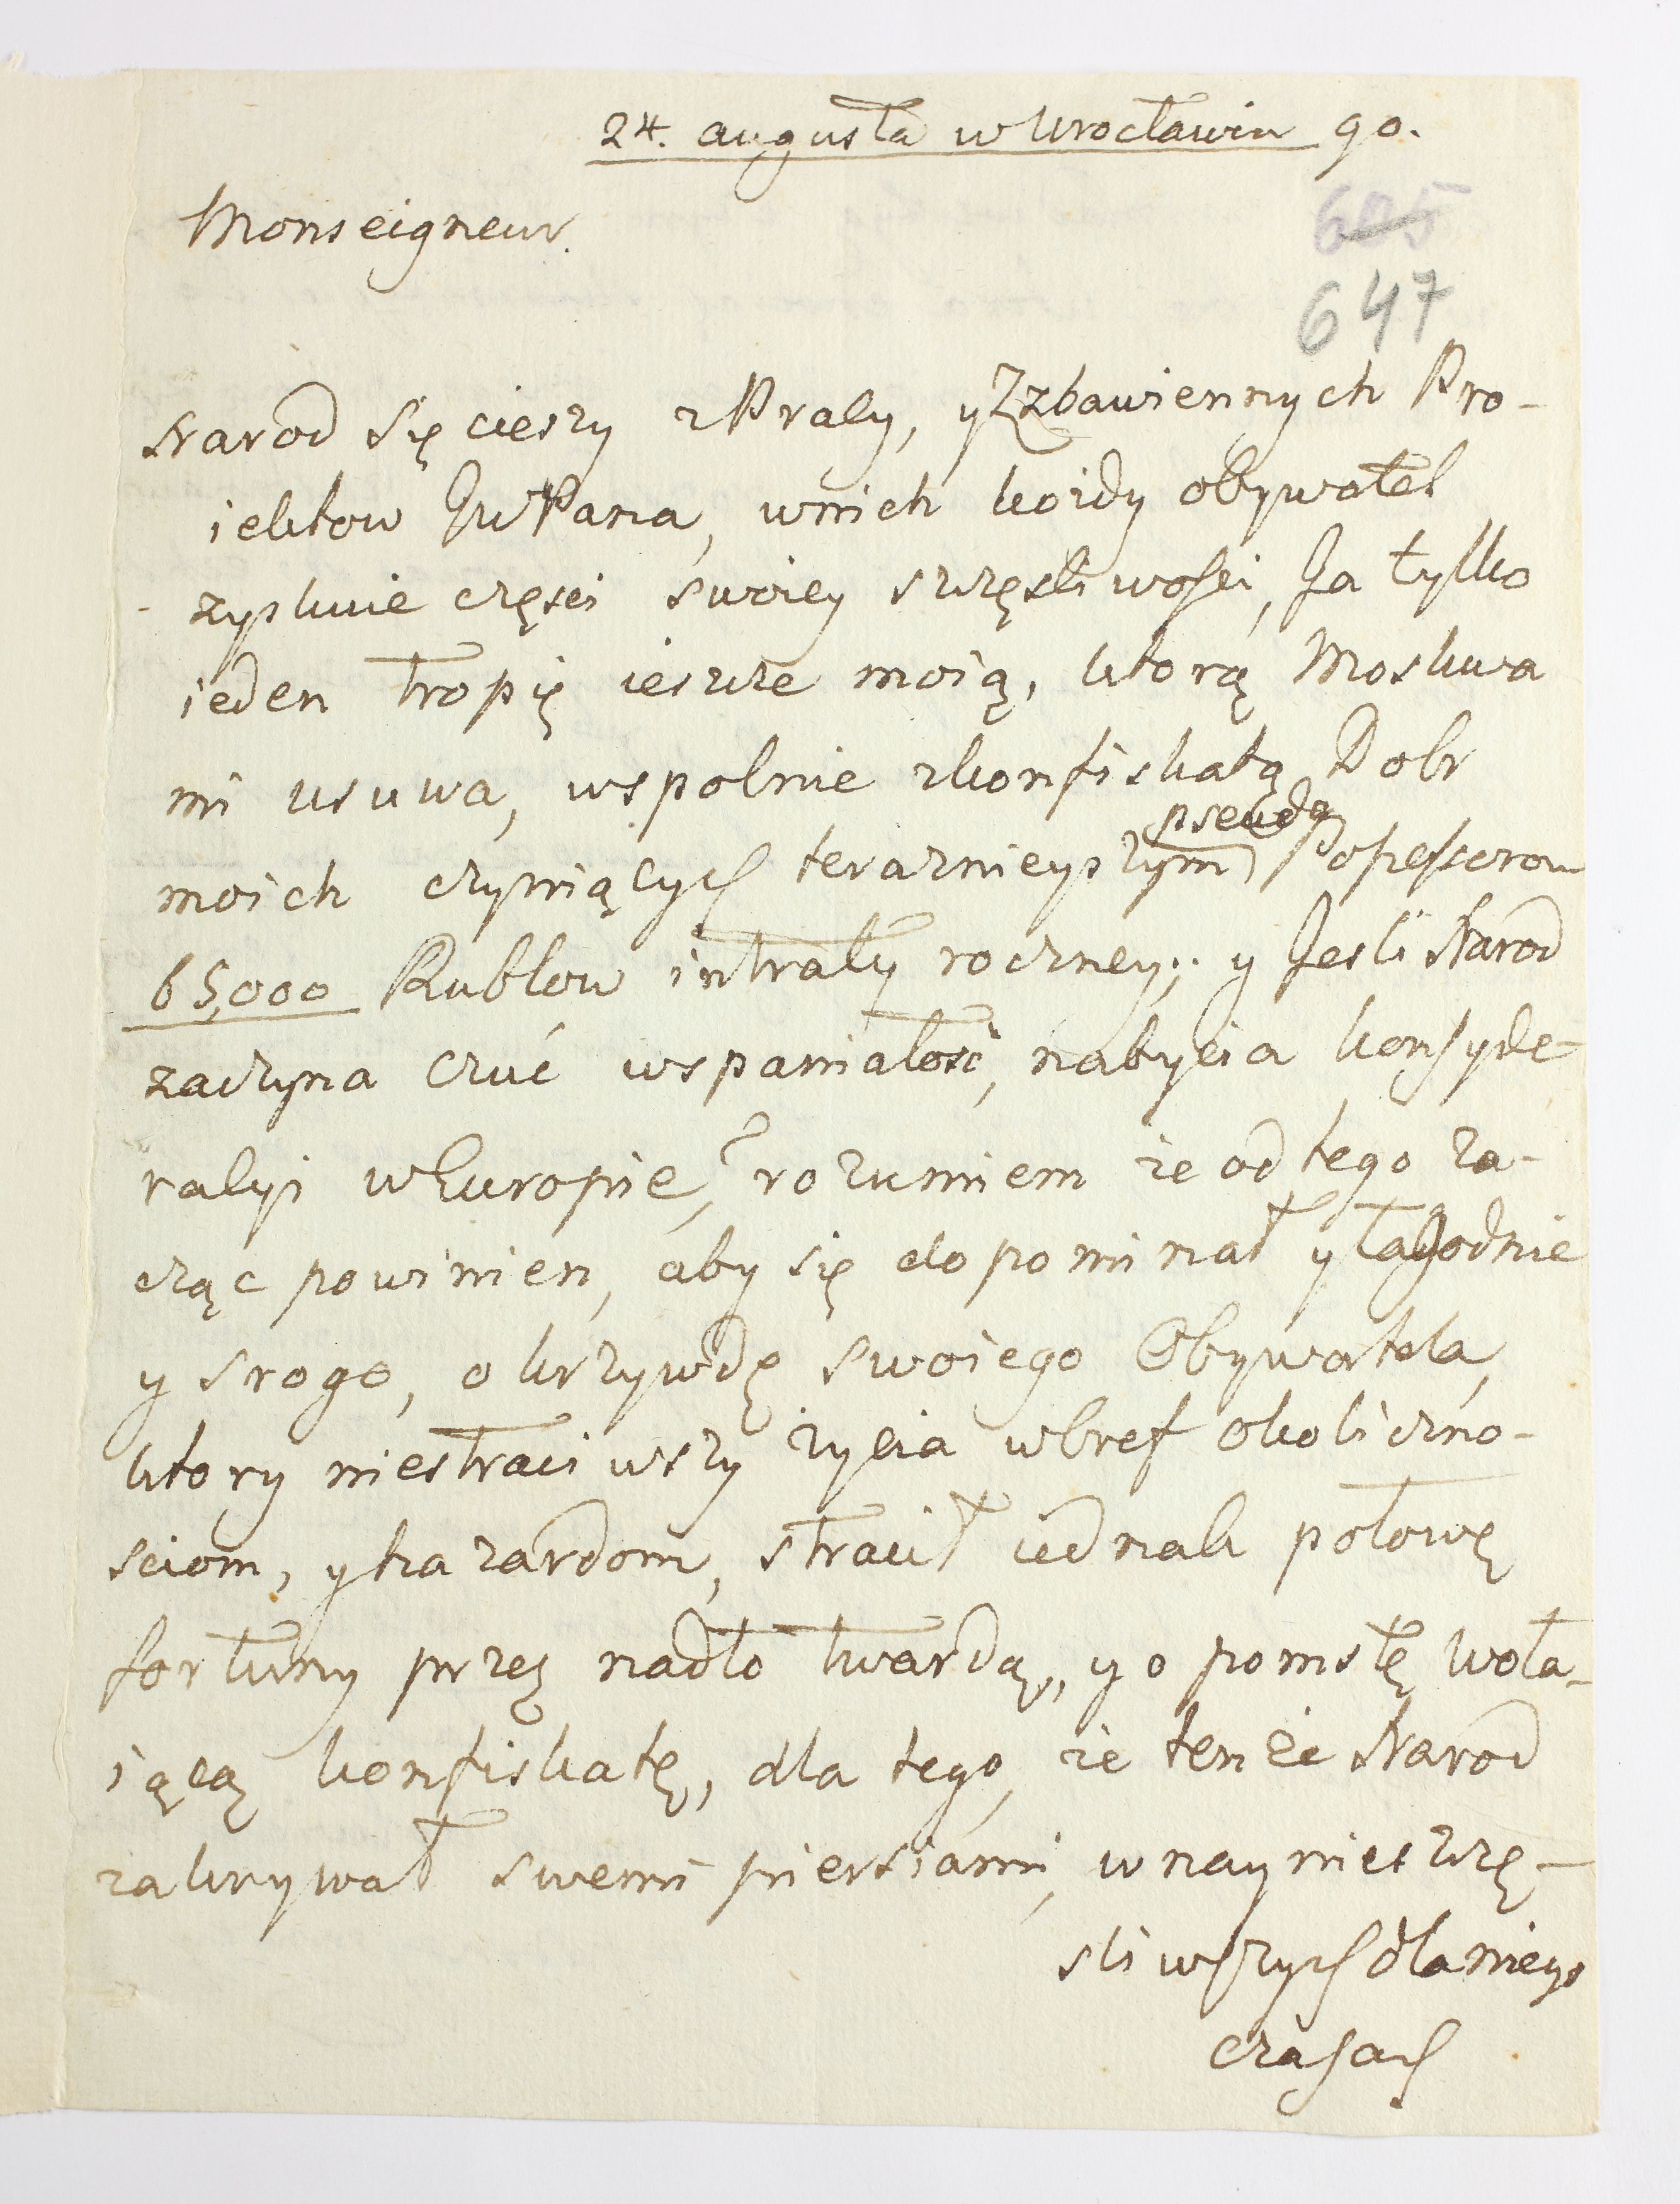 24. augusta w Wrocławiu 90.
Monseigneur.
605
647
Narod się cieszy z Pracy, y Zzbawiennych Pro-
iektow JWPana, w nich kozdy obywatel
zyskuie częsci swoiey szczęsliwosci, Ja tylko
ieden tropię ieszcze moią, ktorą Moskwa
mi usuwa, wspolnie z konfiskatą Dobr
moich czyniących teraznieyszym pseudo Possessorom
65,000 Rublow intraty roczney; y Jesli Narod
zaczyna czuć wspaniałość, nabycia konsyde-
racyi w Europie, rozumiem ze od tego za-
cząc powinien, aby się dopominał y łagodnie
y srogo, o krzywdę swoiego Obywatela,
ktory niestraciwszy zycia wbref okoliczno-
sciom, y hazardom, stracił iednak połowę
fortuny przez nadto twardą, y o pomstę woła-
iącą konfiskatę, dla tego, ze tenże Narod
zakrywał swemi piersiami, w naynieszczę-
sliwszych dla niego
czasach